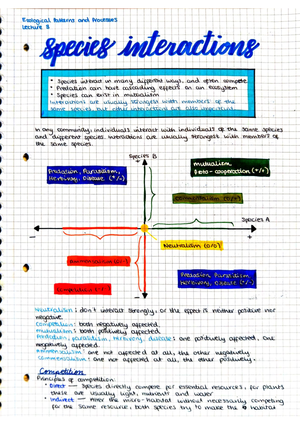 Ecological Patterns and Processes
Lecture 3
Species interactions
• Species interact in many different ways, and often compete
• Predation can have cascading effects on an ecosystem
• Species can exist in mutualism
Interactions are usually strongest with members of the
same species, but other interactions are also important.
In any community, individuals interact with individuals of the same species
and different species. Interactions are usually strongest with members of
the same species.
Species B
+
Predation, Parasitism,
Herbivory, Disease (+/-)
Mutualism,
Proto-cooperation (+/+)
Commensalism (+/0)
Species A
-
+
Neutralism (0/0)
Amensalism (0/-)
Competition (-/-)
Predation, Parasitism
Herbivory, Disease (+/-)
-
Neutralism: don't interact strongly, or the effect is neither positive nor
negative.
Competition: both negatively affected.
Mutualism: both positively affected.
Predation, parasitism, herbivory, disease: one positively affected, one
negatively affected.
Amensalism: one not affected at all, the other negatively.
Commensalism: one not affected at all, the other positively.
Competition
Principles of competition:
• Direct — species directly compete for essential resources, for plants
these are usually light, nutrient and water
• Indirect — the micro-habitat without necessarily competing
for the same resource, both species try to make the habitat